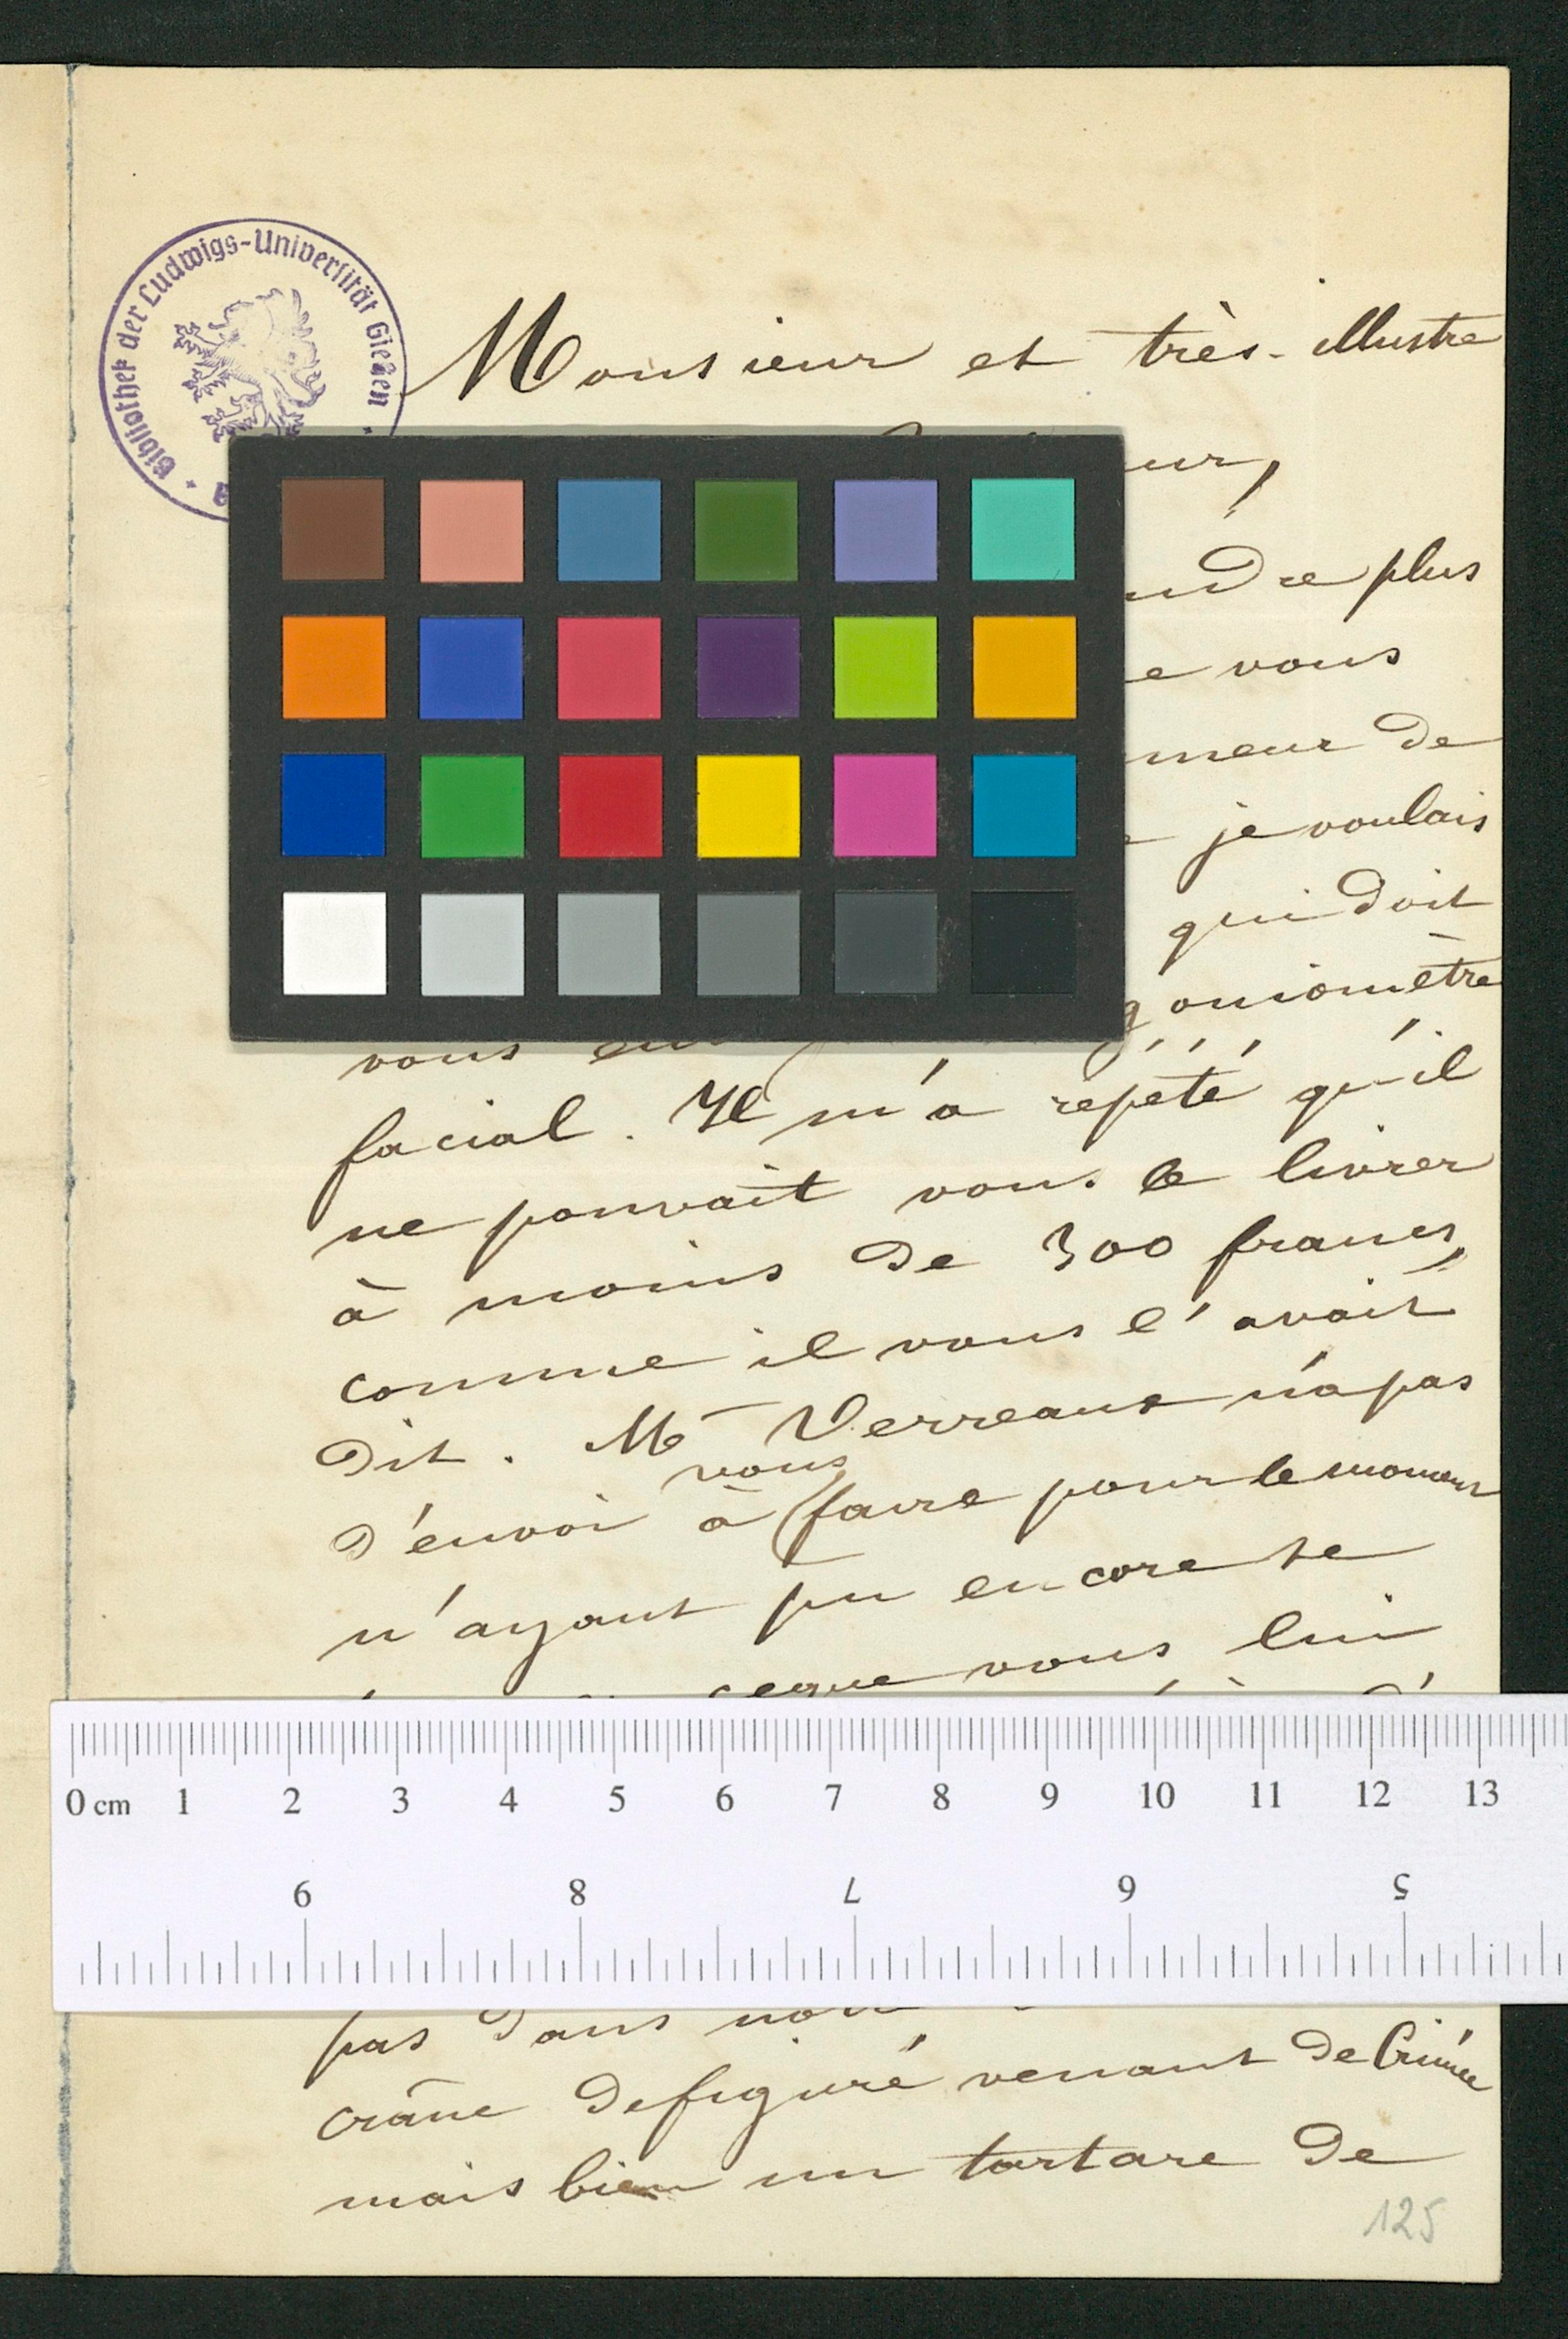 Bibliothek der Ludwigs-Universität Gießen
Monsieur et très-illustre
plus
vous
de
je voulais
qui doit
vous goniomètre
facial. Il m'a répété qu'il
ne pouvait vous le livrer
à moins de 300 francs,
comme il vous l'avait
dit. Mr Verreaux n'a pas
vous
d'envoi à faire pour le moment
n'ayant pu encore se
ce que vous lui
0 cm 1 2 3 4 5 6 7 8 9 10 11 12 13
9 8 7 6 5
pas dans
crâne defiguré venant de Crimée
mais bien un tartare de
125